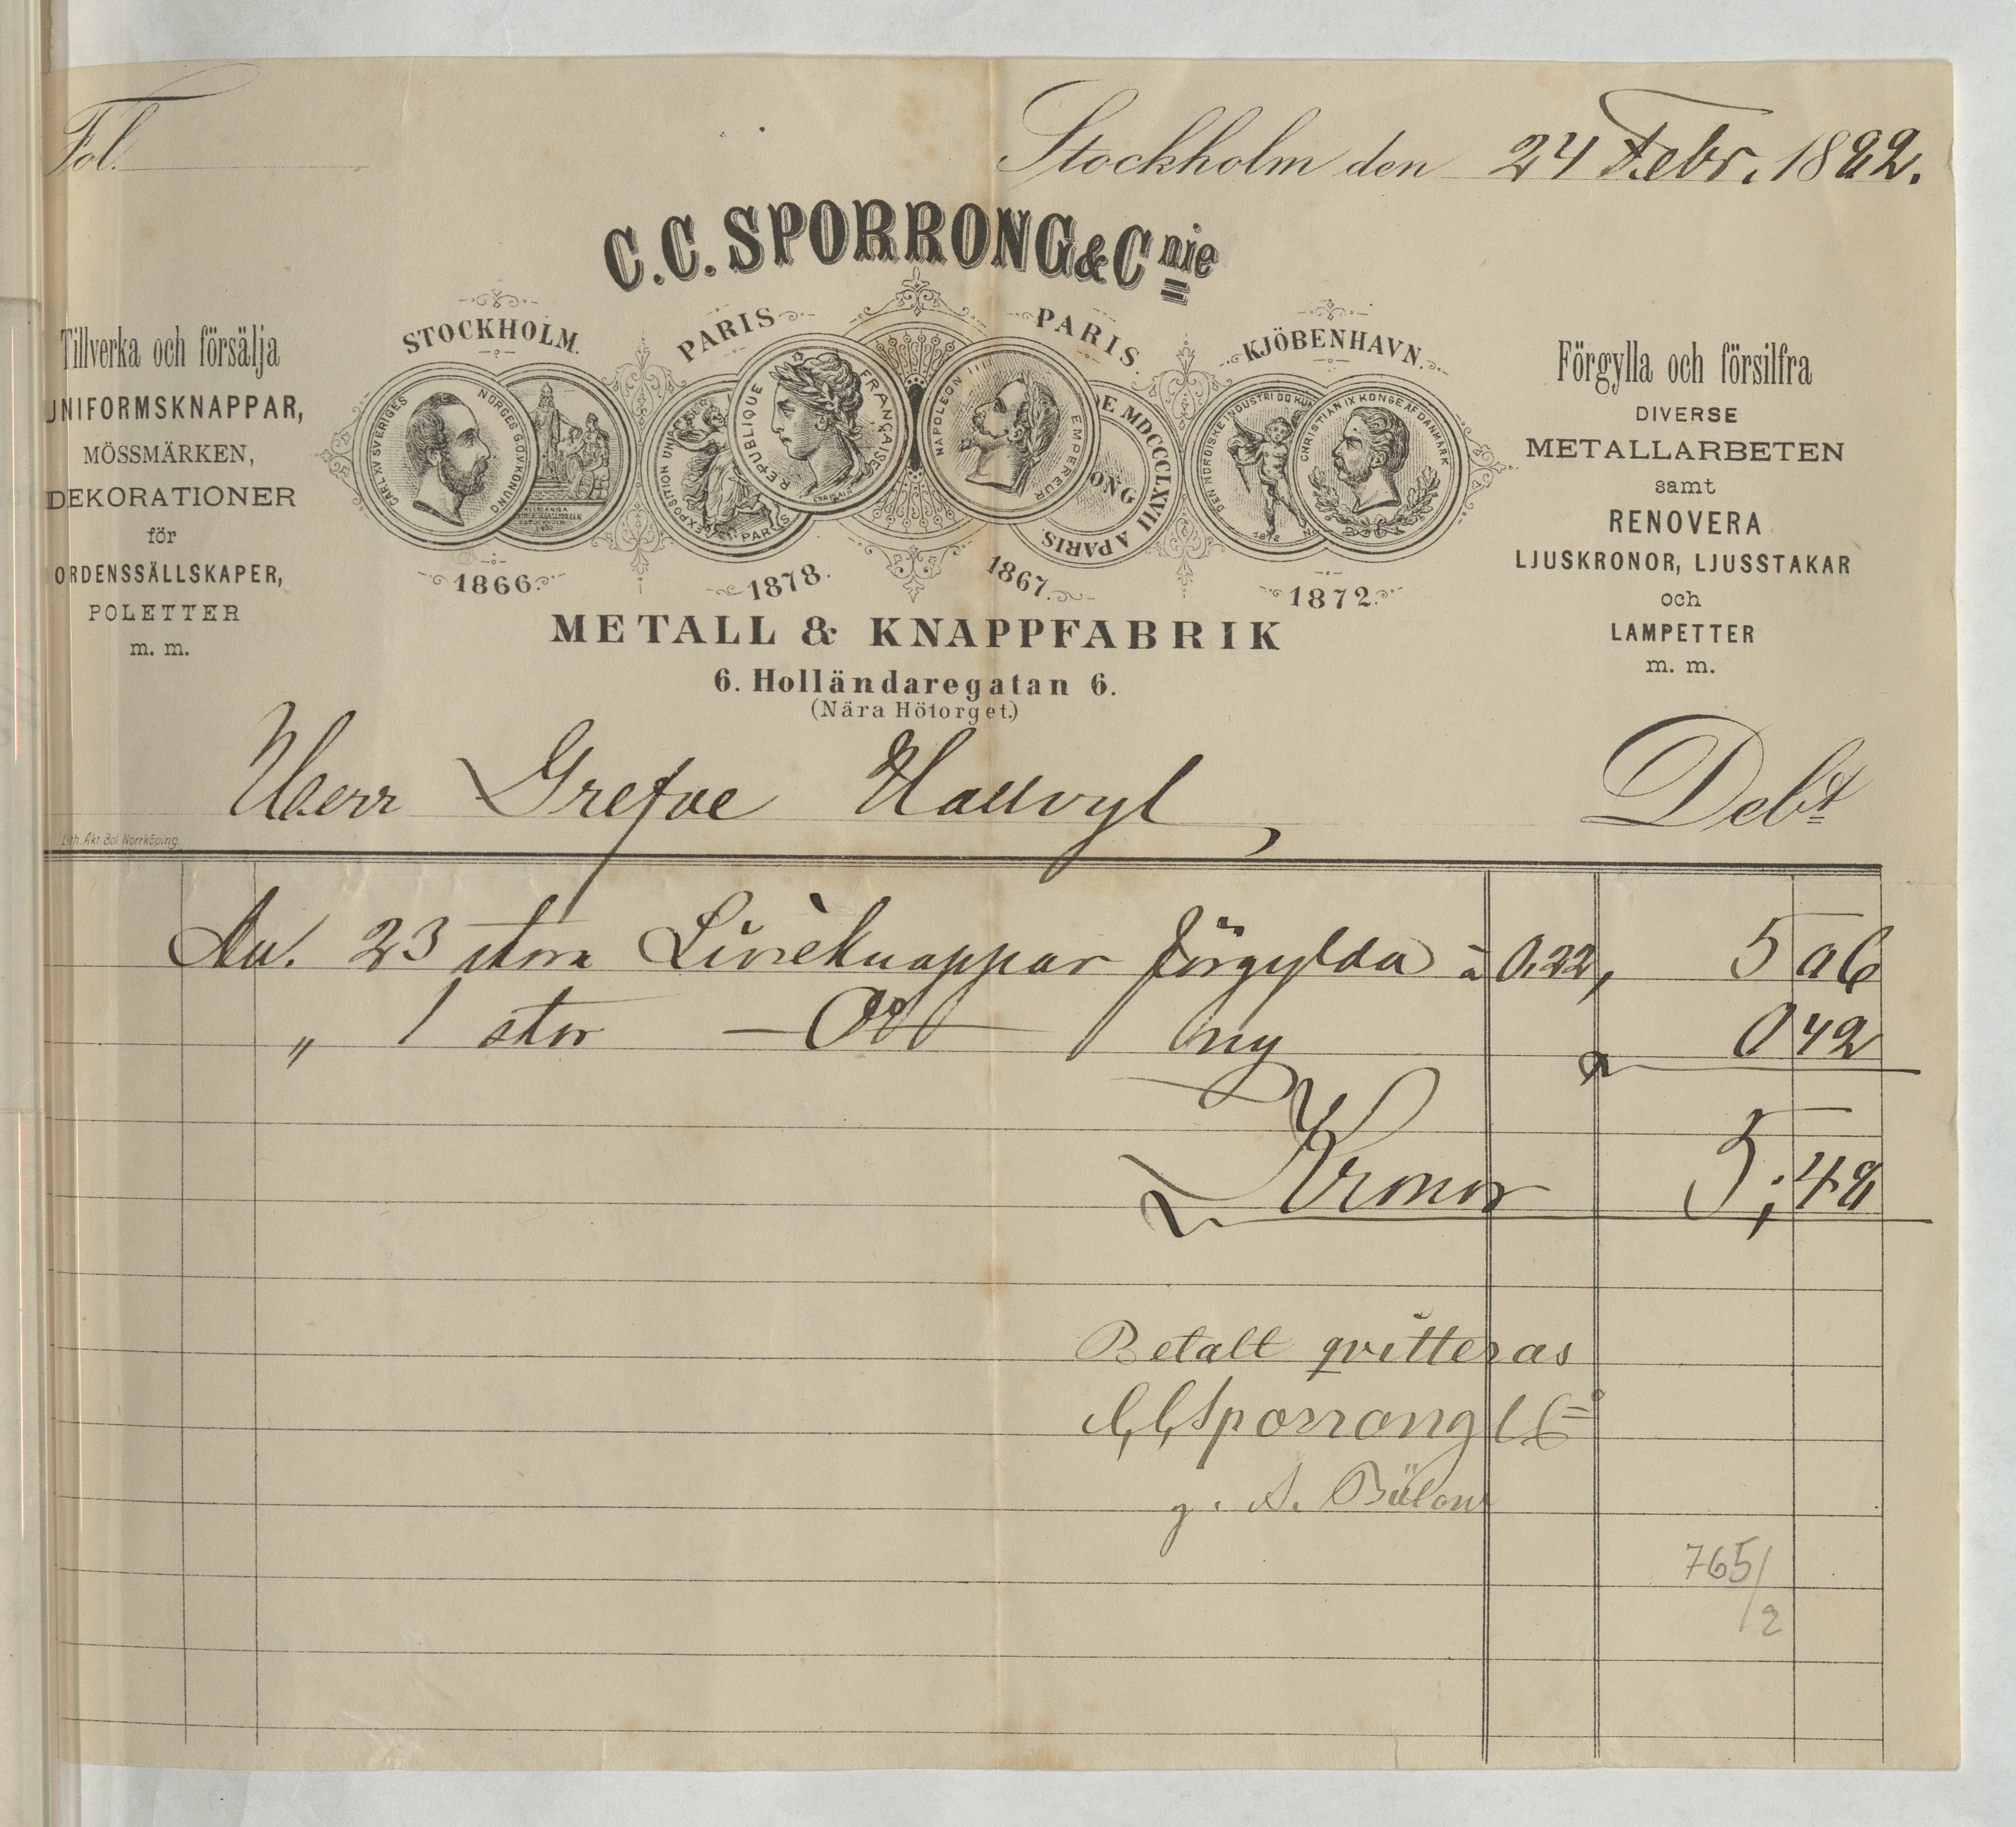 Fol.
Stockholm den 24 Febr. 1882.
C.C. SPORRONG & Cnie
Tillverka och försälja
UNIFORMSKNAPPAR,
MÖSSMÄRKEN,
DEKORATIONER
för
ORDENSSÄLLSKAPER,
POLETTER
m. m.
STOCKHOLM.
PARIS
PARIS.
KJÖBENHAVN.
CARL XV SVERIGES NORGES G. O. V. KONUNG
EXPOSITION UNI PARIS
REPUBLIQUE FRANÇAISE
NAPOLEON III EMPEREUR
DE MDCCCLXVII A PARIS.
ONG
DEN NORDISKE INDUSTRI OG KUN
1872
CHRISTIAN IX KONGE AF DANMARK
1866.
1878.
1867.
1872.
Förgylla och försilfra
DIVERSE
METALLARBETEN
samt
RENOVERA
LJUSKRONOR, LJUSSTAKAR
och
LAMPETTER
m. m.
METALL & KNAPPFABRIK
6. Holländaregatan 6.
(Nära Hötorget.)
Herr Grefve Hallvyl, Debt
Lith. Akt. Bol. Norrköping.
An. 23 stora Livréknappar förgylda à 0,22, 5 06
" 1 stor — Do — ny 0 42
Kronor 5; 48
Betalt qvitteras
C, C, Sporrong & Co
g. A. Bülow
765/2